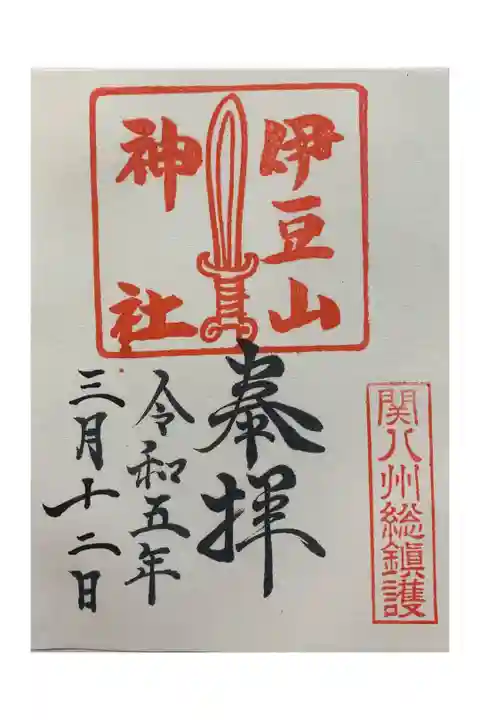 伊豆山
神社
関八州総鎮護
奉拝
令和五年
三月十二日